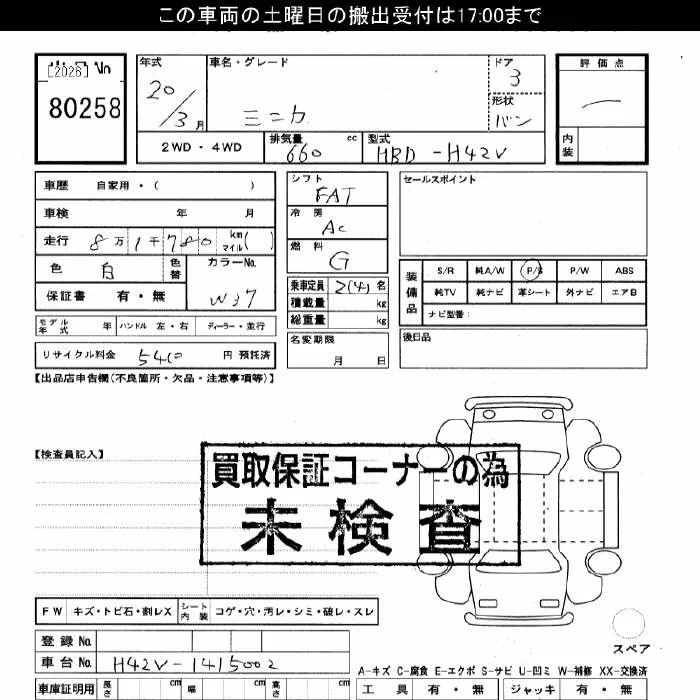 この車両の土曜日の搬出受付は17:00まで
[2026]
80258
年式 20/3月
車名・グレード ミニカ
ドア 3
形状 バン
評価点 —
内装
2WD・4WD
排気量 660 cc
型式 HBD-H42V
車歴 自家用・( )
車検 年 月
走行 8万1千780 km マイル( )
色 白 色替
カラーNo. W37
保証書 有・無
モデル年式 年 ハンドル 左・右 ディーラー・並行
リサイクル料金 5410 円 預託済
シフト FAT
冷房 AC
燃料 G
乗車定員 2(4)名
積載量 kg
総重量 kg
名変期限 月 日
セールスポイント
装備品 S/R 純A/W P/S P/W ABS
純TV 純ナビ 革シート 外ナビ エアB
ナビ型番:
後日品
【出品店申告欄(不良箇所・欠品・注意事項等)】
【検査員記入】
買取保証コーナーの為
未検査
FW キズ・トビ石・割レX シート内装 コゲ・穴・汚レ・シミ・破レ・スレ
スペア
登録No.
車台No. H42V-1415002
A-キズ C-腐食 E-エクボ S-サビ U-凹ミ W-補修 XX-交換済
車庫証明用 長さ cm 幅 cm 高さ cm
工具 有・無 ジャッキ 有・無